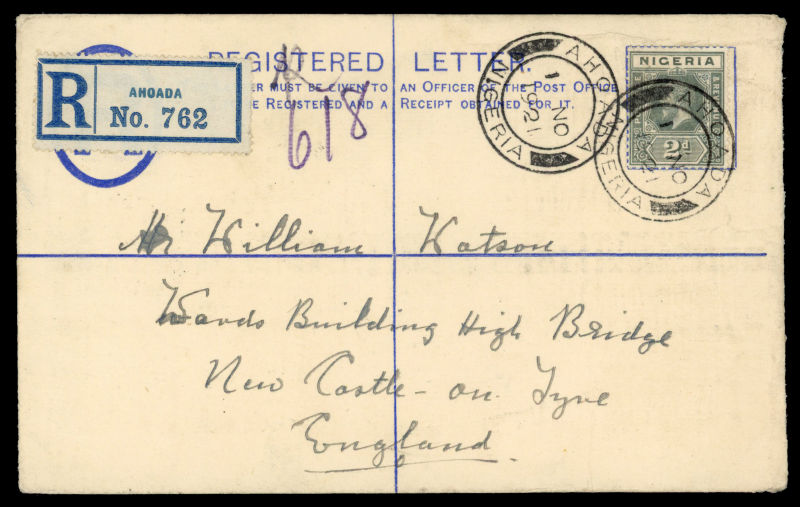 REGISTERED LETTER.
ER MUST BE GIVEN TO AN OFFICER OF THE POST OFFICE
E REGISTERED AND A RECEIPT OBTAINED FOR IT.
R
AHOADA
No. 762
R
618
AHOADA
1 NO
1921
NIGERIA
NIGERIA
2d
AHOADA
1 NO
21
NIGERIA
Mr William Watson
Wards Building High Bridge
New Castle-on Tyne
England.